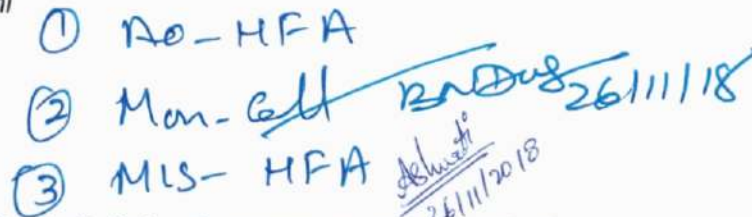 ① AO-HFA
② Mon-Cell 26/11/18
③ MIS-HFA Ashwati
26/11/2018